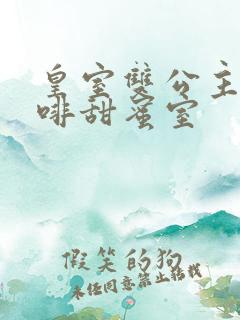 皇室雙公主
啡甜蜜室
假笑的狗
未經同意禁止轉載